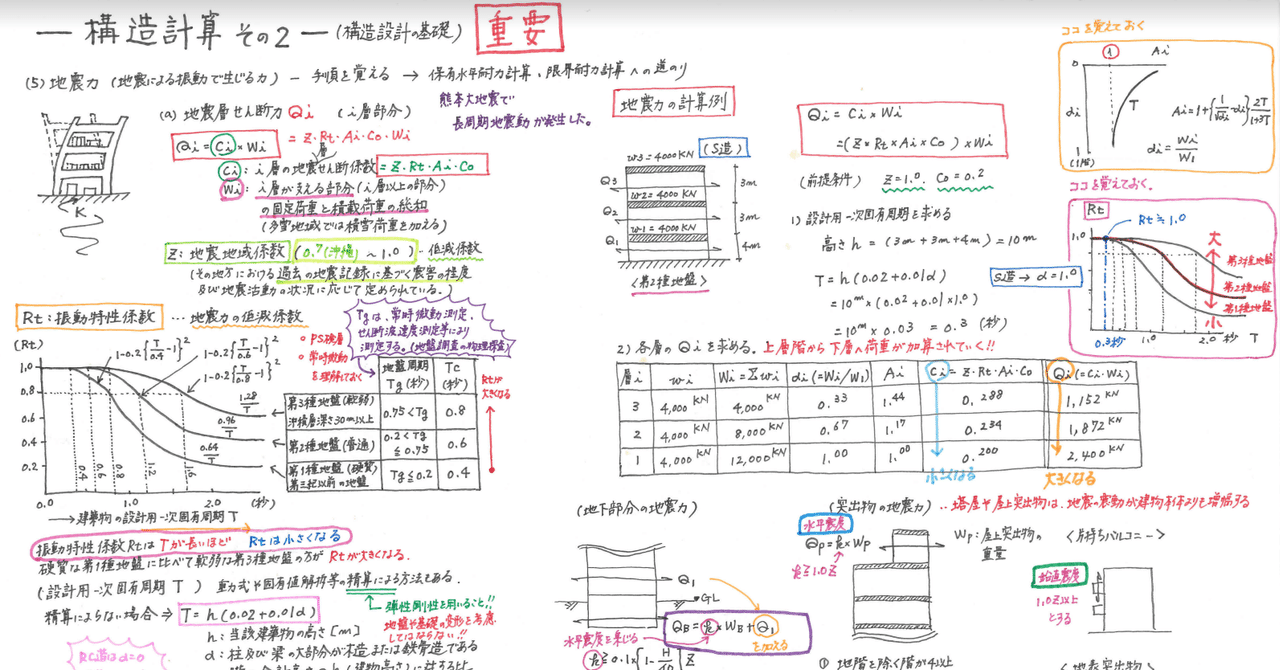 — 構造計算 その2 — (構造設計の基礎) 重要
(5) 地震力 (地震による振動で生じる力) — 手順を覚える → 保有水平耐力計算、限界耐力計算への道のり
(a) 地震層せん断力 Qi (i層部分)
熊本大地震で
長周期地震動が発生した。
Qi = Ci × Wi = Z・Rt・Ai・Co・Wi
層
Ci : i層の地震せん断係数 = Z・Rt・Ai・Co
Wi : i層が支える部分(i層以上の部分)
の固定荷重と積載荷重の総和
(多雪地域では積雪荷重を加える)
K
Z : 地震地域係数 (0.7(沖縄) ~ 1.0) - 低減係数
(その地方における過去の地震記録に基づく震害の程度
及び地震活動の状況に応じて定められている。)
Rt : 振動特性係数 … 地震力の低減係数
Tgは、常時微動測定、
せん断波速度測定等により
測定する。(地盤調査の物理探査)
PS検層
常時微動
を理解しておく
(Rt)
1-0.2{T/0.4-1}²
1-0.2{T/0.6-1}²
1-0.2{T/0.8-1}²
1.0
0.8
0.6
0.4
0.2
1.28/T
0.96/T
0.64/T
0.4 0.6 0.8 1.2 1.6
0.0 1.0 2.0 (秒)
→ 建築物の設計用一次固有周期 T
地盤周期 Tg(秒) Tc (秒)
第3種地盤(軟弱) 沖積層深さ30m以上 0.75<Tg 0.8
第2種地盤(普通) 0.2<Tg ≦0.75 0.6
第1種地盤(硬質) 第三紀以前の地盤 Tg≦0.2 0.4
Rtが
大きくなる
振動特性係数RtはTが長いほど Rtは小さくなる
硬質な第1種地盤に比べて軟弱な第3種地盤の方がRtが大きくなる。
(設計用一次固有周期 T) 重力式や固有値解析等の精算による方法もある。
弾性剛性を用いること!!
精算によらない場合 ⇒ T = h(0.02+0.01α)
地盤や基礎の変形を考慮
してはならない!!
h : 当該建築物の高さ [m]
RC造はα=0
α : 柱及び梁の大部分が木造または鉄骨造である
地震力の計算例
(S造)
w3 = 4000KN
w2 = 4000 KN
w1 = 4000KN
Q3
Q2
Q1
3m
3m
4m
<第2種地盤>
Qi = Ci × Wi
=(Z × Rt × Ai × Co) × Wi
(前提条件) Z=1.0. Co=0.2
1) 設計用一次固有周期を求める
高さ h = (3m + 3m + 4m) = 10m
T = h(0.02+0.01α) S造 → α=1.0
= 10m × (0.02 + 0.01 × 1.0)
= 10m × 0.03 = 0.3 (秒)
2) 各層のQiを求める。上層階から下層へ荷重が加算されていく!!
層i wi Wi = Σwi αi (=Wi/W1) Ai Ci = Z・Rt・Ai・Co Qi (=Ci・Wi)
3 4,000KN 4,000KN 0.33 1.44 0.288 1,152KN
2 4,000KN 8,000KN 0.67 1.17 0.234 1,872KN
1 4,000KN 12,000KN 1.00 1.00 0.200 2,400KN
小さくなる 大きくなる
ココを覚えておく
① Ai
0
αi
1(1階)
T
Ai=1+{1/√αi-αi}2T/1+3T
αi = Wi/W1
ココを覚えておく。
Rt
Rt≒1.0
1.0
大
第3種地盤
第2種地盤
第1種地盤
小
0.3秒 1.0 2.0 秒 T
(地下部分の地震力)
Q1
GL
QB = k × WB + Q1
を加える
水平震度を乗じる
(突出物の地震力) ‥塔屋や屋上突出物は、地震の震動が建物本体よりも増幅する
水平震度
Qp = k × Wp
k≧1.0Z
Wp : 屋上突出物の
重量
<片持ちバルコニー>
鉛直震度
1.0Z以上
とする
① 地階を除く階が4以上